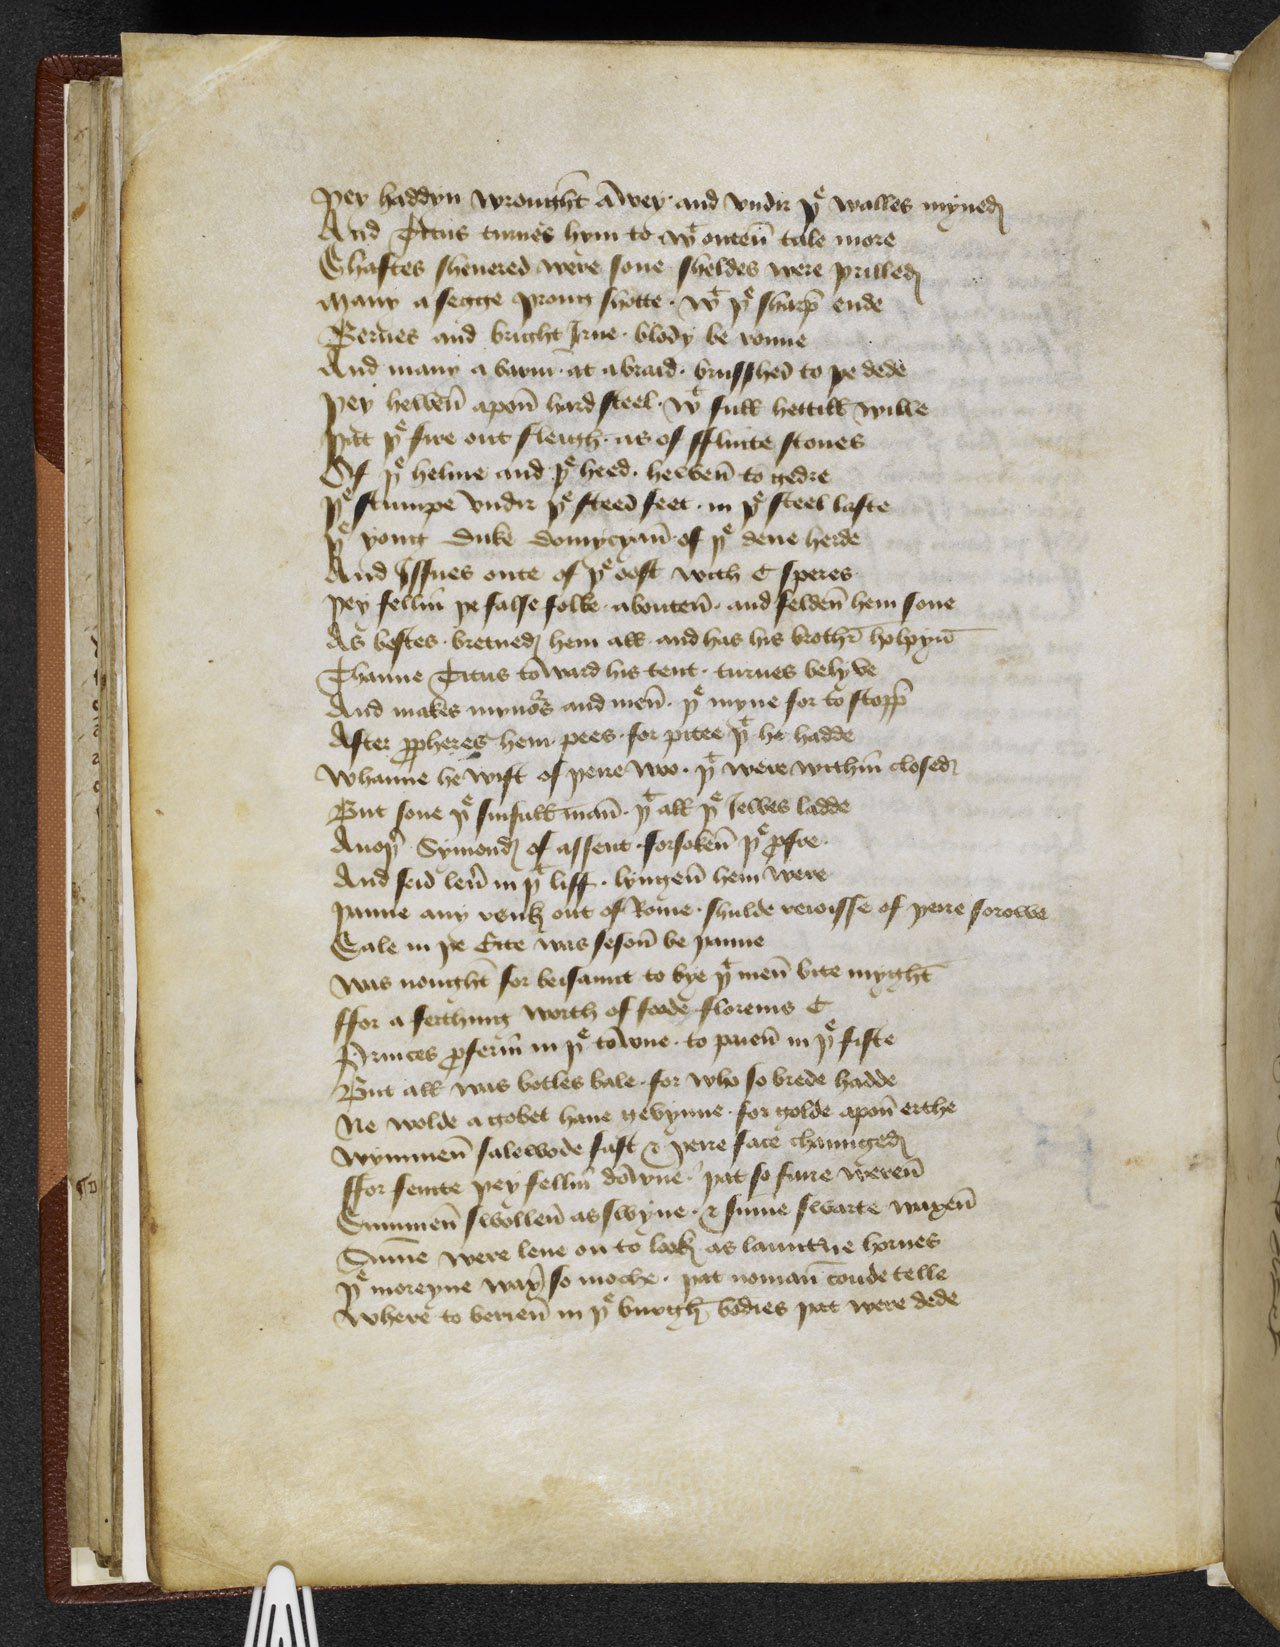 þey haddyn wrought a wey · and vndir þe walles myned
And Titus turnes hym to wt outen tale more
Shaftes sheuered were sone sheldes were þrilled
Many a segge þroug shotte · wt þe sharp ende
Bernes and bright Irne · blody be ronne
And many a barm · at abraid · brusshed to þe dede
þey hewen apon hard steel · wt full hettill wille
þat þe fire out fleigh · as of fflinte stones
Of þe helme and þe heed · hewen to gedre
þe stumpe vndir þe steed feet · in þe steel lafte
þe yong duke domycyan · of þe dene herde
And Issues oute of þe oost with C speres
þey fellin þe false folke · abouten · and felden hem sone
As bestes · bretned hem all · and has his brothir holpyn
Thanne Titus toward his tent · turnes belyve
And makes mynors and men · þe myne for to stopp
After ppheres hem · pees · for pitee þt he hadde
Whanne he wist of þeire woo · þt were within closed
But sone þe sinfull man · þt all þe Iewes ladde
Anoþr Symond of assent · forsoken þe pfre ·
And seid leur in þt liff · lyngen hem were
þanne any renk out of Rome · shulde reioisse of þeire sorowe
Sale in þe Cite was seson be þanne
Was nought for beisaunt to bye þt men bite myght
ffor a ferthing worth of foode florems C
Princes pferin in þe towne · to paien in þe fifte
But all was botles bale · for who so brede hadde
Ne wolde a gobet haue gevynne · for golde apon erthe
Wymmen falewode fast & þeire face chaunged
ffor feinte þey fellin downe · þat so faire weren
Summen swollen as swyne · & sume swarte waxen
Sume were lene on to look · as lanterne hornes
þe moreyne wax so moche · þat noman coude telle
Where to berien in þe burgh bodies þat were dede